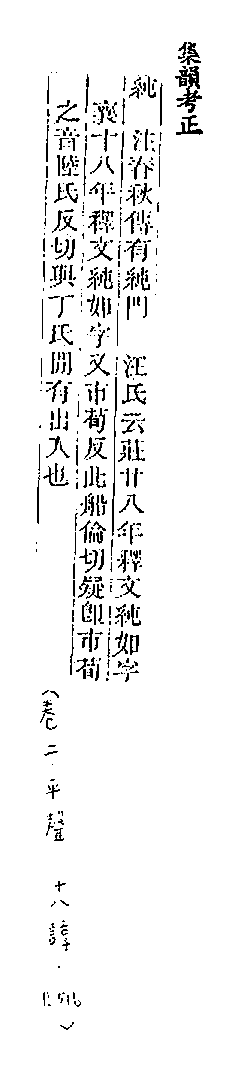 集韻考正
純　注春秋傳有純門　汪氏云莊廿八年釋文純如字
襄十八年釋文純如字又市荀反此船倫切疑卽市荀
之音陸氏反切與丁氏閒有出入也
(卷二·平聲　十八諄·